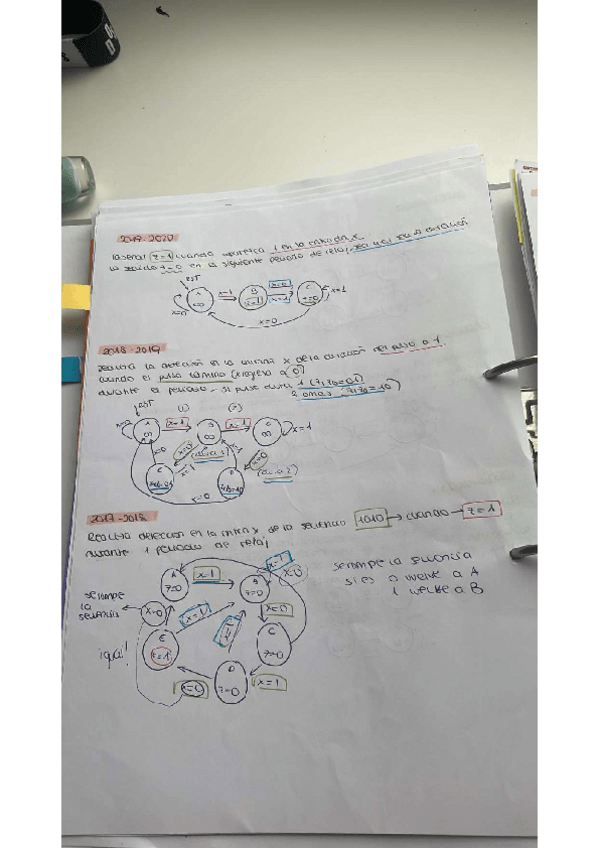 2019-2020
la señal z=1 cuando aparezca 1 en la entrada x
la salida z=0 en el siguiente periodo de reloj, sea cual sea la duración
RST
A
00
x=0
x=1
B
z=1
x=0
x=1
C
z=0
x=1
x=0
2018-2019
realiza la detección en la entrada x de la duración del pulso a 1.
cuando el pulso termina (x regresa a 0)
durante el periodo - si pulso dura 1 (z1z0=01)
2 o mas (z1z0=10)
RST
(1)
(2)
x=0
A
00
x=1
B
00
x=1
C
00
x=1
x=0
x=0
(dura 1)
x=1
x=1
x=0
(dura 2)
x=0
2017-2018
Realiza detección en la entrada x de la secuencia 1010 → cuando → z=1
durante 1 periodo de reloj
se rompe la secuencia
si es 0 vuelve a A
1 vuelve a B
A
z=0
x=1
B
z=0
x=1
x=0
se rompe
la
secuencia
x=0
x=1
x=0
E
z=1
C
z=0
¡igual!
x=0
D
z=0
x=1